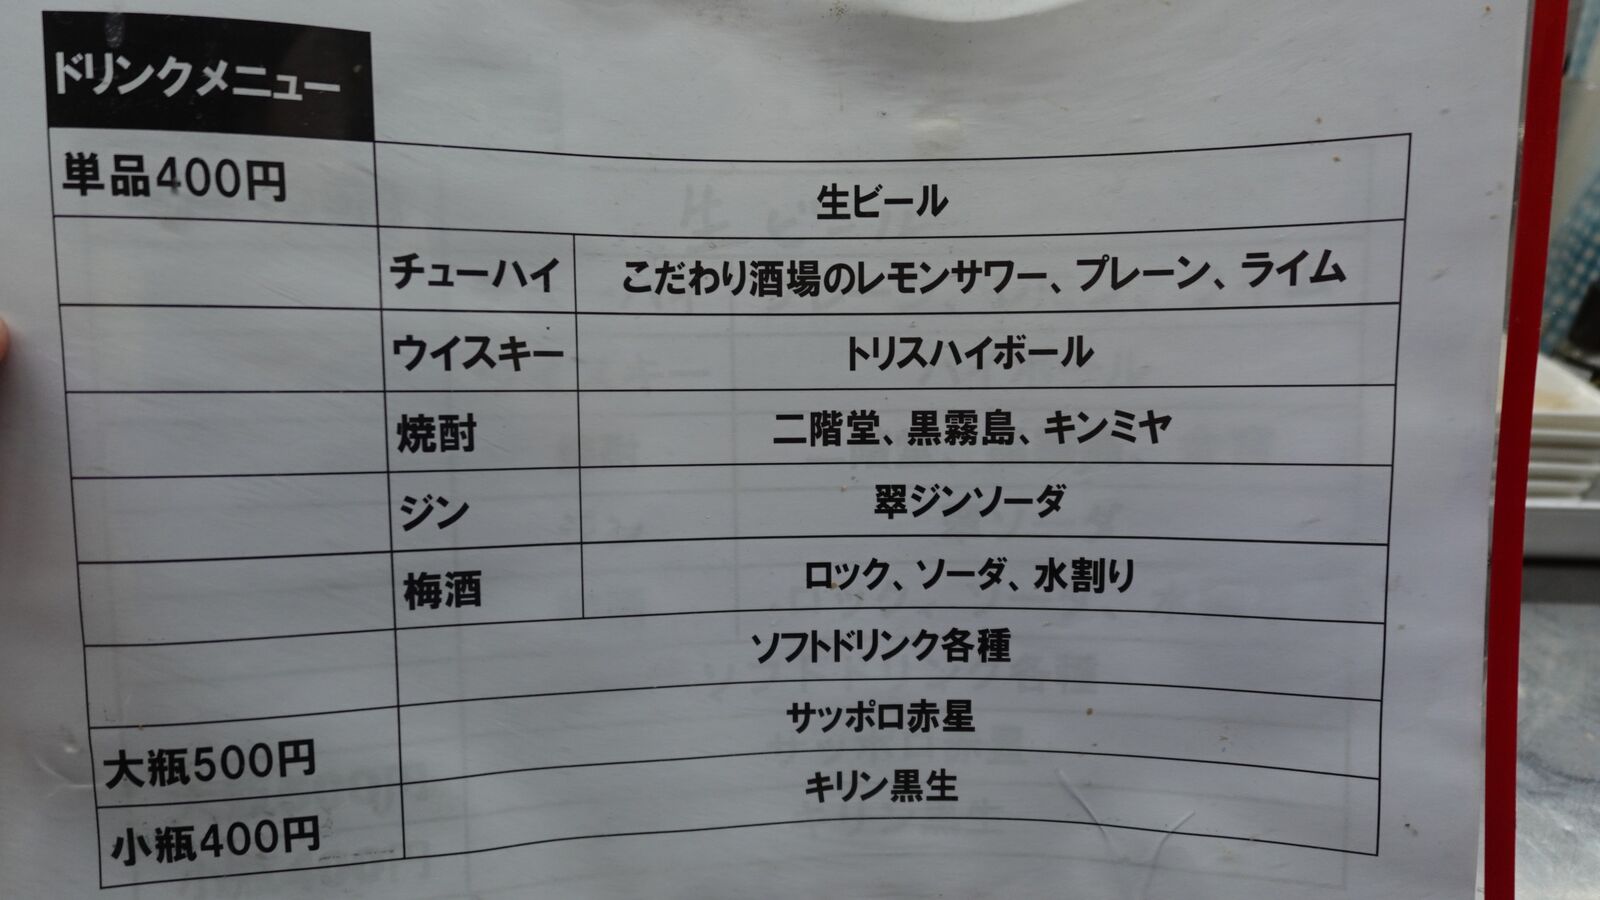 ドリンクメニュー
単品400円 生ビール
チューハイ こだわり酒場のレモンサワー、プレーン、ライム
ウイスキー トリスハイボール
焼酎 二階堂、黒霧島、キンミヤ
ジン 翠ジンソーダ
梅酒 ロック、ソーダ、水割り
ソフトドリンク各種
大瓶500円 サッポロ赤星
小瓶400円 キリン黒生